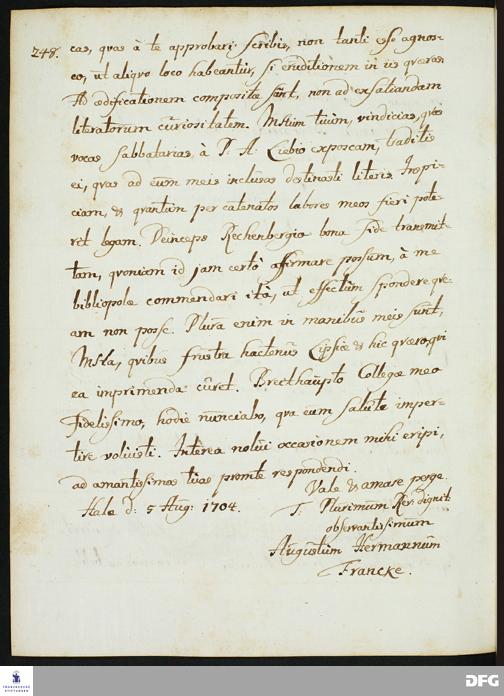 248. cas, qvas à te approbari scribis, non tanti esse agnos-
co, ut aliqvo loco habeantur, si eruditionem in iis qværas
Ad ædificationem compositæ sunt, non ad exsatiandam
literatorum curiositatem. Mstum tuum, vindicias, qvas
vocas Sabbatarias, à P. A. Liebio exposcam, traditis
ei, qvas ad eum meis inclusas destinasti literis. Inspi-
ciam, & qvantum per catenatos labores meos fieri pote-
rit legam. Deinceps Rechenbergio bona fide transmit-
tam, qvoniam id jam certò affirmare possum, à me
bibliopolæ commendari ità, ut effectum spondere qve-
am non posse. Plura enim in manibus meis sunt,
Msta, qvibus frustra hactenus Lipsiæ & hic qværo, qvi
ea imprimenda curet. Breithaupto Collegæ meo
Fidelissimo, hodie nunciabo, qva eum salute imper-
tire voluisti. Interea nolui occasionem mihi eripi,
ad amantissimas tuas promte respondendi.
Vale & amare perge
Halæ d: 5 Aug: 1704.
T. Plurimum Rev. dignit
observantissimum
Augustum Hermannum
Francke.
FRANCKESCHE
STIFTUNGEN
DFG